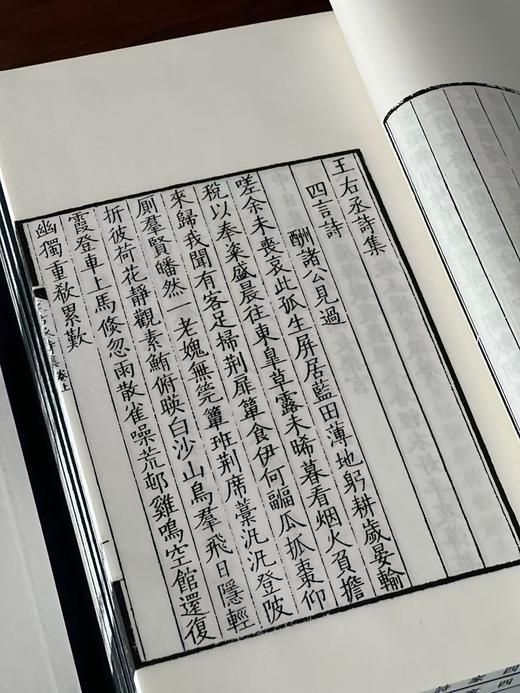 王右丞詩集
四言詩
酬諸公見過
嗟余未喪哀此孤生屏居藍田薄地躬耕歲晏輸
稅以奉粢盛晨往東皐草露未晞暮看烟火負擔
來歸我聞有客足掃荆扉簞食伊何疈瓜抓棗仰
厠羣賢皤然一老媿無莞簟班荆席藁汎汎登陂
折彼荷花靜觀素鮪俯暎白沙山鳥羣飛日隱輕
霞登車上馬倏忽雨散雀噪荒邨雞鳴空館還復
幽獨重欷累歎